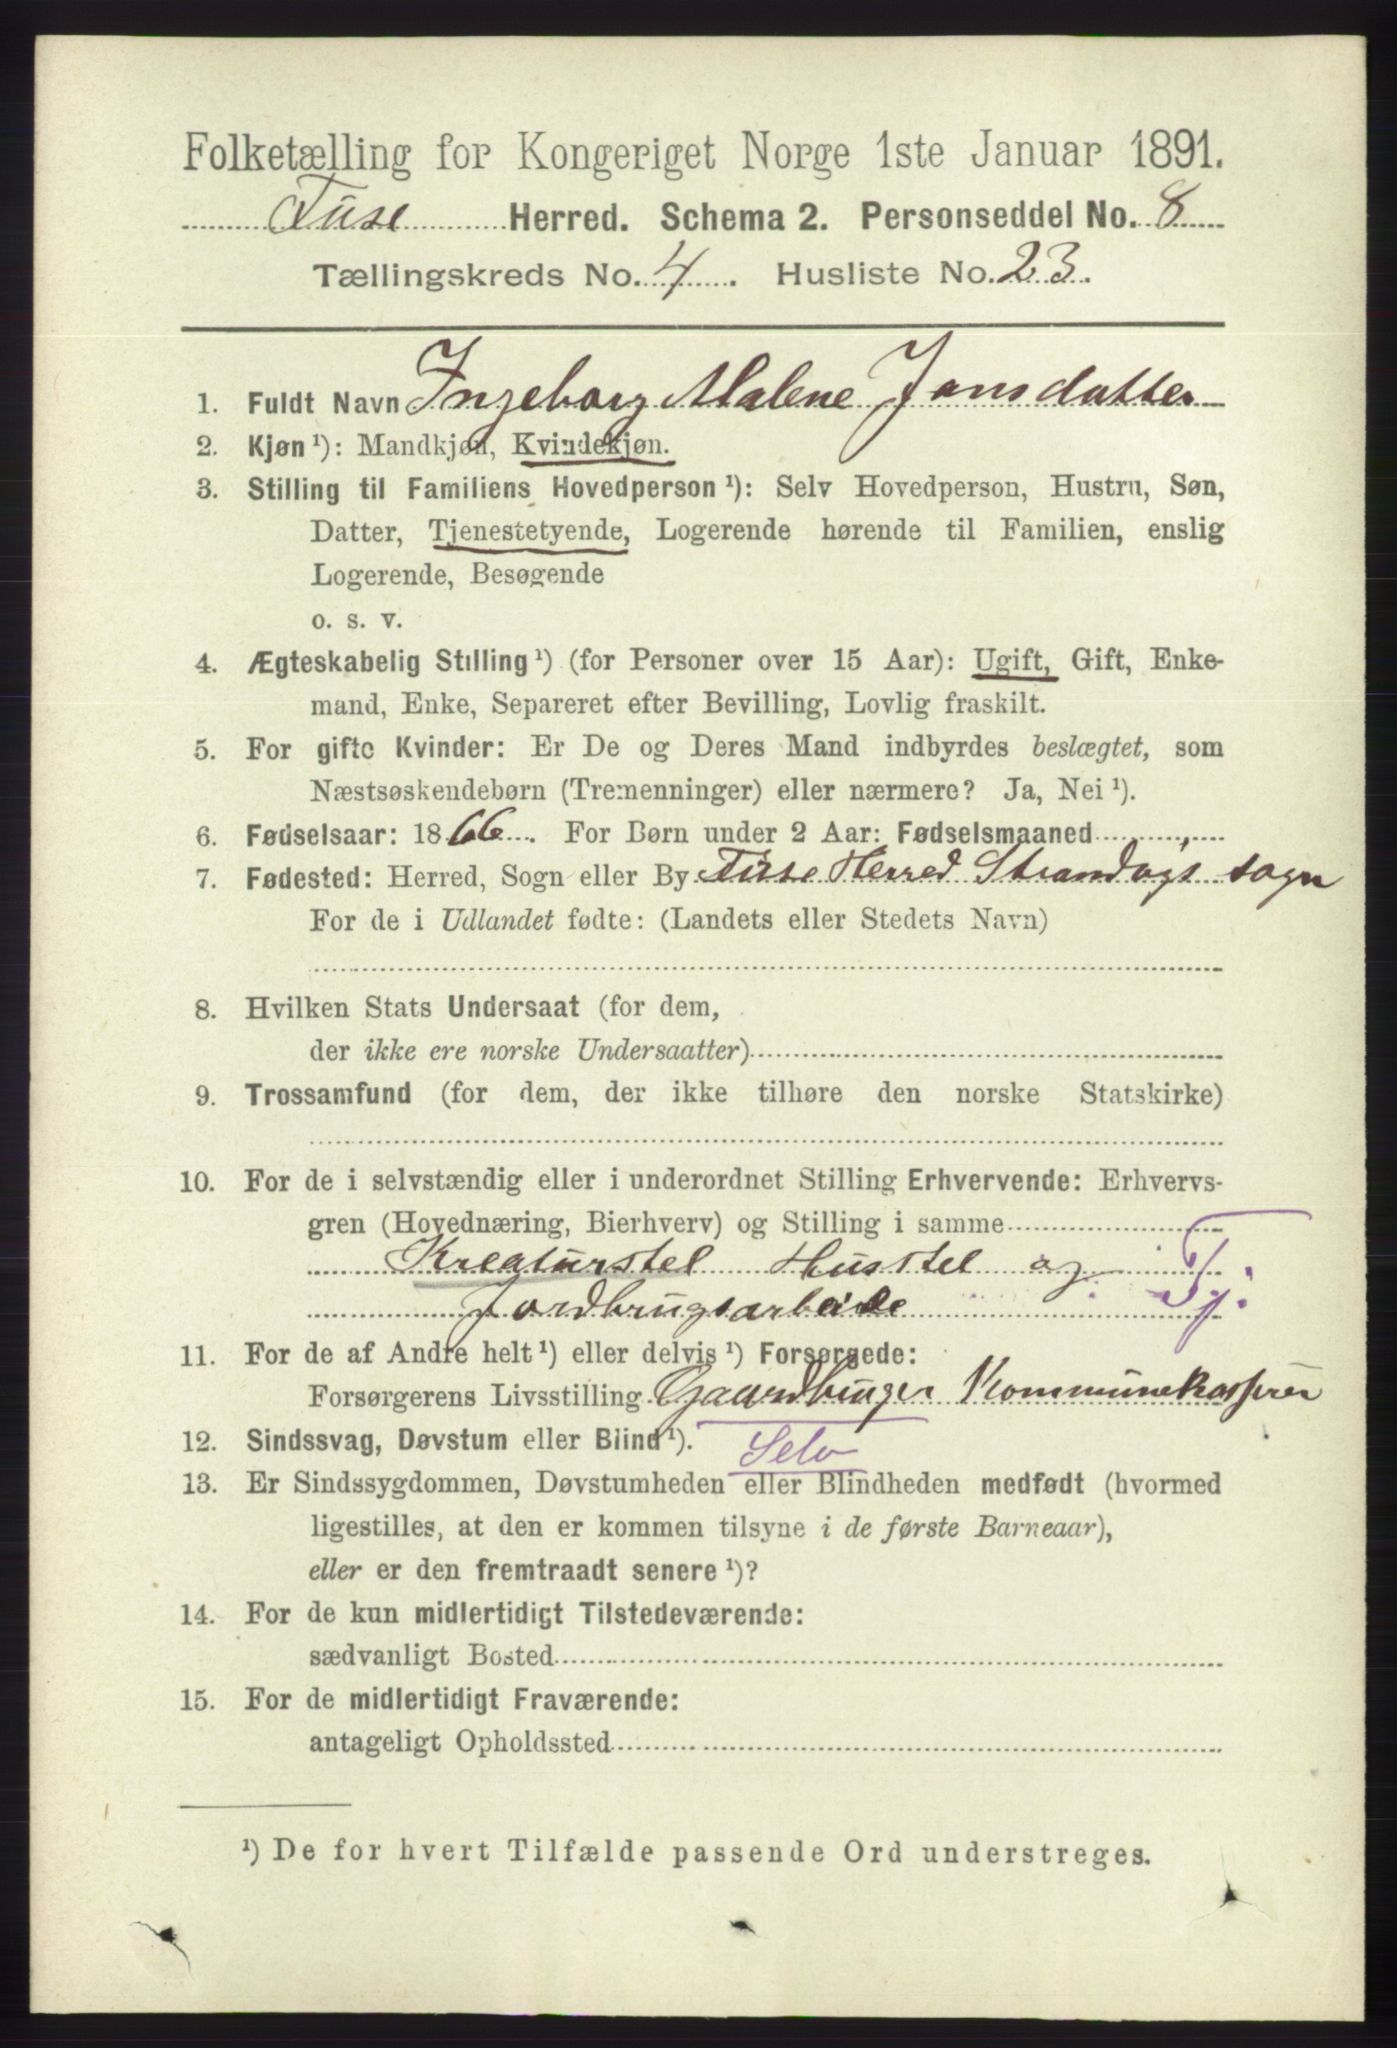 Folketælling for Kongeriget Norge 1ste Januar 1891.
Fuse Herred. Schema 2. Personseddel No. 8
Tællingskreds No. 4. Husliste No. 23.
1. Fuldt Navn Ingeborg Malene Jonsdatter
2. Kjøn ¹): Mandkjøn, Kvindekjøn.
3. Stilling til Familiens Hovedperson ¹): Selv Hovedperson, Hustru, Søn,
Datter, Tjenestetyende, Logerende hørende til Familien, enslig
Logerende, Besøgende
o. s. v.
4. Ægteskabelig Stilling ¹) (for Personer over 15 Aar): Ugift, Gift, Enke-
mand, Enke, Separeret efter Bevilling, Lovlig fraskilt.
5. For gifte Kvinder: Er De og Deres Mand indbyrdes beslægtet, som
Næstsøskendebørn (Tremenninger) eller nærmere? Ja, Nei ¹).
6. Fødselsaar: 1866. For Børn under 2 Aar: Fødselsmaaned
7. Fødested: Herred, Sogn eller By Fuse Herred Strandvigs sogn
For de i Udlandet fødte: (Landets eller Stedets Navn)
8. Hvilken Stats Undersaat (for dem,
der ikke ere norske Undersaatter)
9. Trossamfund (for dem, der ikke tilhøre den norske Statskirke)
10. For de i selvstændig eller i underordnet Stilling Erhvervende: Erhvervs-
gren (Hovednæring, Bierhverv) og Stilling i samme
Kreaturstel Husstel og Tj:
Jordbrugsarbeide
11. For de af Andre helt ¹) eller delvis ¹) Forsørgede:
Forsørgerens Livsstilling Gaardbruger Kommunekasserer
12. Sindssvag, Døvstum eller Blind ¹). Selv
13. Er Sindssygdommen, Døvstumheden eller Blindheden medfødt (hvormed
ligestilles, at den er kommen tilsyne i de første Barneaar),
eller er den fremtraadt senere ¹)?
14. For de kun midlertidigt Tilstedeværende:
sædvanligt Bosted
15. For de midlertidigt Fraværende:
antageligt Opholdssted
¹) De for hvert Tilfælde passende Ord understreges.